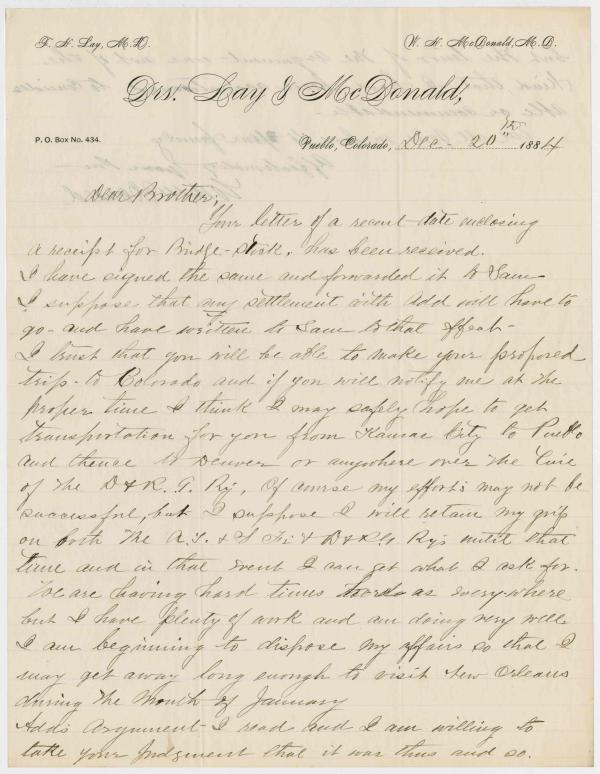 F. H. Lay, M.D.
W. H. McDonald, M.D.
Drs. Lay & McDonald,
P. O. Box No. 434.
Pueblo, Colorado, Dec - 20th 1884
Dear Brother,
Your letter of a recent date enclosing
a receipt for Bridge-stock, has been received.
I have signed the same and forwarded it to Sam
I suppose that my settlement with Add will have to
go - and have written to Sam to that effeat -
I trust that you will be able to make your proposed
trip - to Colorado and if you will notify me at the
proper time I think I may safely hope to get
transportation for you from Kansas City to Pueblo
and thence to Denver or anywhere over the Line
of the D & R. G. Ry, Of course my efforts may not be
successful, but I suppose I will retain my grip
on both the A. T. & S Fe & D & R. G. Ry's until that
time and in that event I can get what I ask for.
We are having hard times as every-where
but I have plenty of work and am doing very well
I am beginning to dispose my affairs so that I
may get away long enough to visit New Orleans
during the Month of January
Add's Argument I read and I am willing to
take your Judgment that it was thus and so.